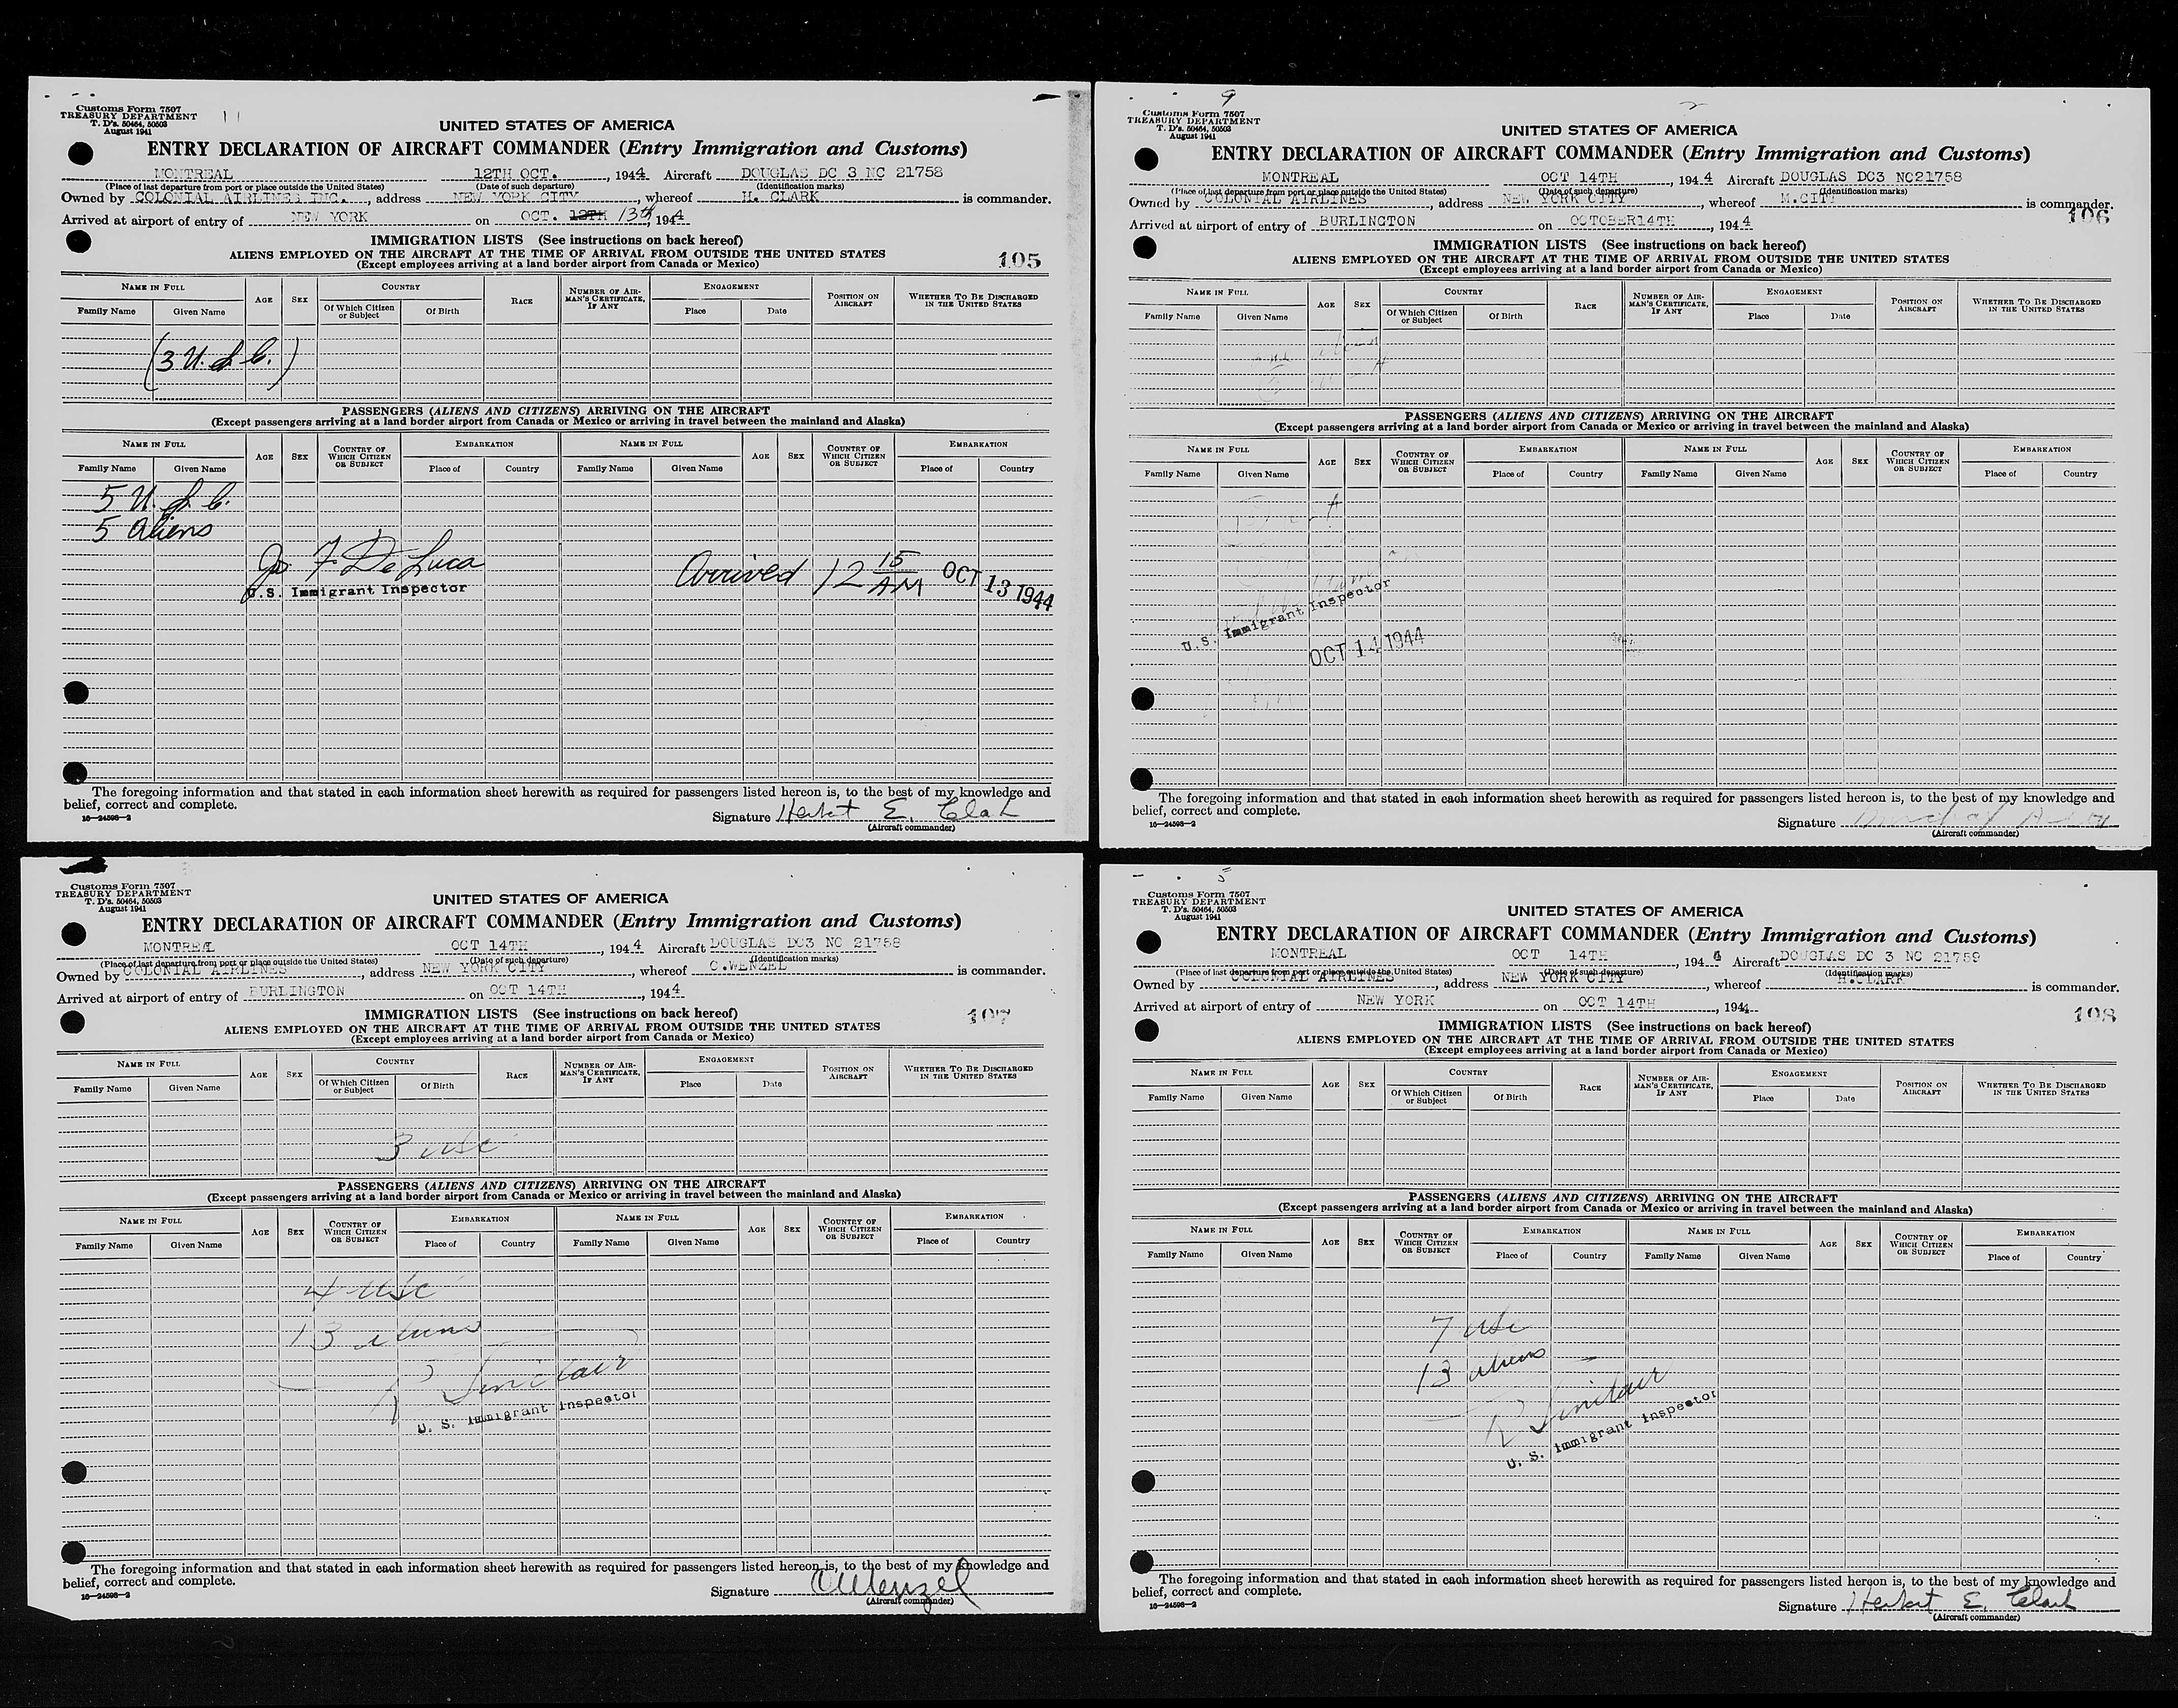 Customs Form 7507
TREASURY DEPARTMENT
T. D's. 50464, 50503
August 1941
11
UNITED STATES OF AMERICA
ENTRY DECLARATION OF AIRCRAFT COMMANDER (Entry Immigration and Customs)
MONTREAL 12TH OCT. , 1944 Aircraft DOUGLAS DC 3 NC 21758
(Place of last departure from port or place outside the United States) (Date of such departure) (Identification marks)
Owned by COLONIAL AIRLINES INC. , address NEW YORK CITY , whereof H. CLARK is commander.
Arrived at airport of entry of NEW YORK on OCT. 12TH 13th, 1944
IMMIGRATION LISTS (See instructions on back hereof)
ALIENS EMPLOYED ON THE AIRCRAFT AT THE TIME OF ARRIVAL FROM OUTSIDE THE UNITED STATES
(Except employees arriving at a land border airport from Canada or Mexico)
105
NAME IN FULL AGE SEX COUNTRY RACE NUMBER OF AIRMAN'S CERTIFICATE, IF ANY ENGAGEMENT POSITION ON AIRCRAFT WHETHER TO BE DISCHARGED IN THE UNITED STATES
Family Name Given Name Of Which Citizen or Subject Of Birth Place Date
(3 U. S. C.)
PASSENGERS (ALIENS AND CITIZENS) ARRIVING ON THE AIRCRAFT
(Except passengers arriving at a land border airport from Canada or Mexico or arriving in travel between the mainland and Alaska)
NAME IN FULL AGE SEX COUNTRY OF WHICH CITIZEN OR SUBJECT EMBARKATION NAME IN FULL AGE SEX COUNTRY OF WHICH CITIZEN OR SUBJECT EMBARKATION
Family Name Given Name Place of Country Family Name Given Name Place of Country
5 U. S. C.
5 Aliens
Jos. F. DeLuca Arrived 12 15 AM OCT 13 1944
U.S. Immigrant Inspector
The foregoing information and that stated in each information sheet herewith as required for passengers listed hereon is, to the best of my knowledge and
belief, correct and complete.
16—24598-2
Signature Herbert E. Clark
(Aircraft commander)
9
Customs Form 7507
TREASURY DEPARTMENT
T. D's. 50464, 50503
August 1941
UNITED STATES OF AMERICA
ENTRY DECLARATION OF AIRCRAFT COMMANDER (Entry Immigration and Customs)
MONTREAL OCT 14TH , 1944 Aircraft DOUGLAS DC3 NC21758
(Place of last departure from port or place outside the United States) (Date of such departure) (Identification marks)
Owned by COLONIAL AIRLINES , address NEW YORK CITY , whereof is commander.
106
Arrived at airport of entry of BURLINGTON on OCTOBER14TH , 1944
IMMIGRATION LISTS (See instructions on back hereof)
ALIENS EMPLOYED ON THE AIRCRAFT AT THE TIME OF ARRIVAL FROM OUTSIDE THE UNITED STATES
(Except employees arriving at a land border airport from Canada or Mexico)
NAME IN FULL AGE SEX COUNTRY RACE NUMBER OF AIRMAN'S CERTIFICATE, IF ANY ENGAGEMENT POSITION ON AIRCRAFT WHETHER TO BE DISCHARGED IN THE UNITED STATES
Family Name Given Name Of Which Citizen or Subject Of Birth Place Date
PASSENGERS (ALIENS AND CITIZENS) ARRIVING ON THE AIRCRAFT
(Except passengers arriving at a land border airport from Canada or Mexico or arriving in travel between the mainland and Alaska)
NAME IN FULL AGE SEX COUNTRY OF WHICH CITIZEN OR SUBJECT EMBARKATION NAME IN FULL AGE SEX COUNTRY OF WHICH CITIZEN OR SUBJECT EMBARKATION
Family Name Given Name Place of Country Family Name Given Name Place of Country
U.S. Immigrant Inspector
OCT 14 1944
The foregoing information and that stated in each information sheet herewith as required for passengers listed hereon is, to the best of my knowledge and
belief, correct and complete.
16—24598-2
Signature
(Aircraft commander)
Customs Form 7507
TREASURY DEPARTMENT
T. D's. 50464, 50503
August 1941
UNITED STATES OF AMERICA
ENTRY DECLARATION OF AIRCRAFT COMMANDER (Entry Immigration and Customs)
MONTREAL OCT 14TH , 1944 Aircraft DOUGLAS DC3 NC 21758
(Place of last departure from port or place outside the United States) (Date of such departure) (Identification marks)
Owned by COLONIAL AIRLINES , address NEW YORK CITY , whereof C.WENZEL is commander.
Arrived at airport of entry of BURLINGTON on OCT 14TH , 1944
IMMIGRATION LISTS (See instructions on back hereof)
107
ALIENS EMPLOYED ON THE AIRCRAFT AT THE TIME OF ARRIVAL FROM OUTSIDE THE UNITED STATES
(Except employees arriving at a land border airport from Canada or Mexico)
NAME IN FULL AGE SEX COUNTRY RACE NUMBER OF AIRMAN'S CERTIFICATE, IF ANY ENGAGEMENT POSITION ON AIRCRAFT WHETHER TO BE DISCHARGED IN THE UNITED STATES
Family Name Given Name Of Which Citizen or Subject Of Birth Place Date
3 USC
PASSENGERS (ALIENS AND CITIZENS) ARRIVING ON THE AIRCRAFT
(Except passengers arriving at a land border airport from Canada or Mexico or arriving in travel between the mainland and Alaska)
NAME IN FULL AGE SEX COUNTRY OF WHICH CITIZEN OR SUBJECT EMBARKATION NAME IN FULL AGE SEX COUNTRY OF WHICH CITIZEN OR SUBJECT EMBARKATION
Family Name Given Name Place of Country Family Name Given Name Place of Country
4 USC
13 aliens
R Sinclair
U. S. Immigrant Inspector
The foregoing information and that stated in each information sheet herewith as required for passengers listed hereon is, to the best of my knowledge and
belief, correct and complete.
16—24598-2
Signature CWenzel
(Aircraft commander)
5
Customs Form 7507
TREASURY DEPARTMENT
T. D's. 50464, 50503
August 1941
UNITED STATES OF AMERICA
ENTRY DECLARATION OF AIRCRAFT COMMANDER (Entry Immigration and Customs)
MONTREAL OCT 14TH , 1944 Aircraft DOUGLAS DC 3 NC 21759
(Place of last departure from port or place outside the United States) (Date of such departure) (Identification marks)
Owned by COLONIAL AIRLINES , address NEW YORK CITY , whereof H.CLARK is commander.
Arrived at airport of entry of NEW YORK on OCT 14TH , 1944
108
IMMIGRATION LISTS (See instructions on back hereof)
ALIENS EMPLOYED ON THE AIRCRAFT AT THE TIME OF ARRIVAL FROM OUTSIDE THE UNITED STATES
(Except employees arriving at a land border airport from Canada or Mexico)
NAME IN FULL AGE SEX COUNTRY RACE NUMBER OF AIRMAN'S CERTIFICATE, IF ANY ENGAGEMENT POSITION ON AIRCRAFT WHETHER TO BE DISCHARGED IN THE UNITED STATES
Family Name Given Name Of Which Citizen or Subject Of Birth Place Date
PASSENGERS (ALIENS AND CITIZENS) ARRIVING ON THE AIRCRAFT
(Except passengers arriving at a land border airport from Canada or Mexico or arriving in travel between the mainland and Alaska)
NAME IN FULL AGE SEX COUNTRY OF WHICH CITIZEN OR SUBJECT EMBARKATION NAME IN FULL AGE SEX COUNTRY OF WHICH CITIZEN OR SUBJECT EMBARKATION
Family Name Given Name Place of Country Family Name Given Name Place of Country
7 USC
13 aliens
R Sinclair
U. S. Immigrant Inspector
The foregoing information and that stated in each information sheet herewith as required for passengers listed hereon is, to the best of my knowledge and
belief, correct and complete.
16—24598-2
Signature Herbert E. Clark
(Aircraft commander)